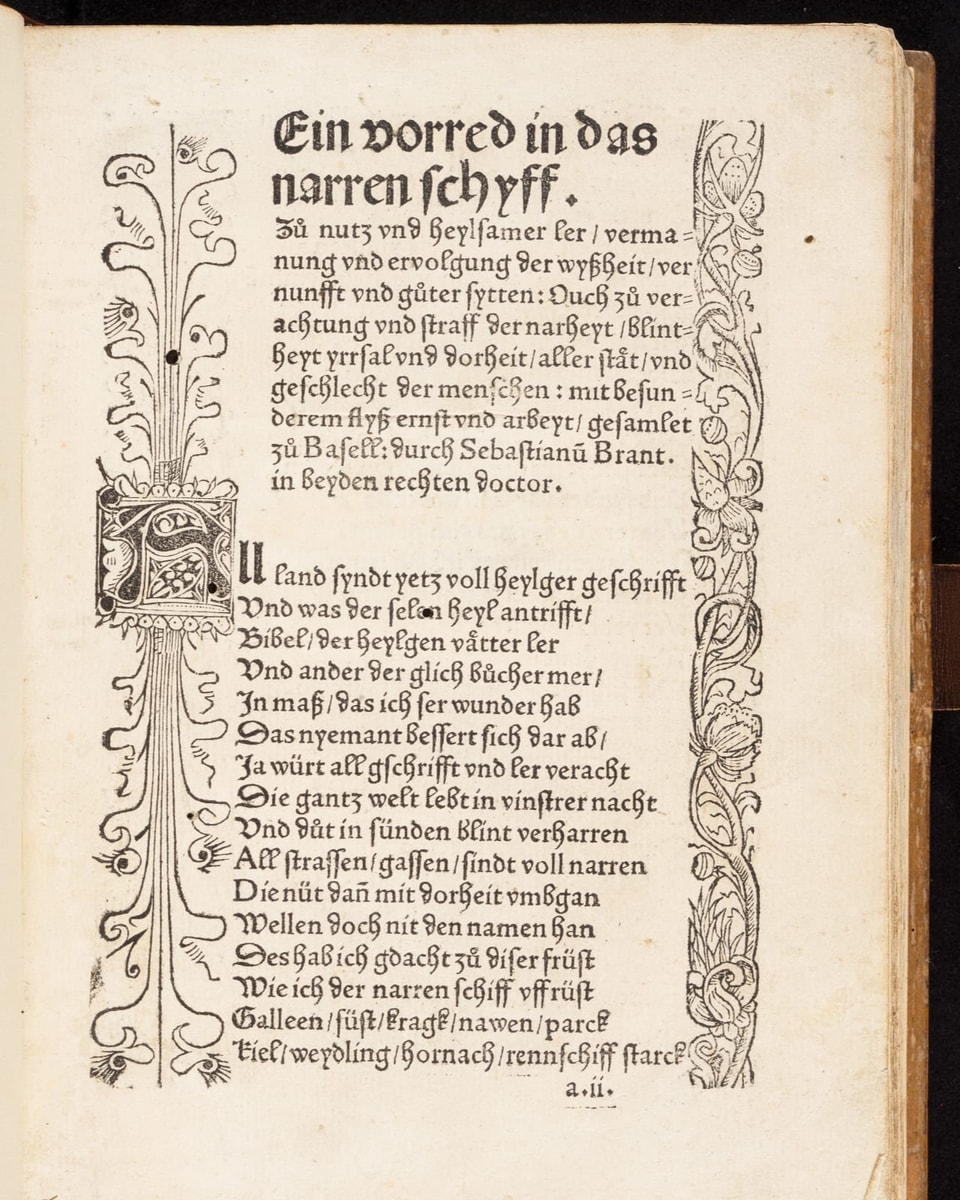 2
Ein vorred in das
narren schyff.
Zů nutz vnd heylsamer ler / verma=
nung vnd ervolgung der wyßheit / ver
nunfft vnd gůter sytten: Ouch zů ver=
achtung vnd straff der narheyt / blint=
heyt yrrsal vnd dorheit / aller ståt / vnd
geschlecht der menschen : mit besun =
derem flyß ernst vnd arbeyt / gesamlet
zů Basell: durch Sebastianū Brant.
in beyden rechten doctor.
All land syndt yetz voll heylger geschrifft
Vnd was der selen heyl antrifft /
Bibel / der heylgen våtter ler
Vnd ander der glich bůcher mer /
In maß / das ich ser wunder hab
Das nyemant bessert sich dar ab /
Ja würt all gschrifft vnd ler veracht
Die gantz welt lebt in vinstrer nacht
Vnd důt in sünden blint verharren
All strassen / gassen / sindt voll narren
Die nüt dañ mit dorheit vmbgan
Wellen doch nit den namen han
Des hab ich gdacht zů diser früst
Wie ich der narren schiff vff rüst
Galleen / füst / kragk / nawen / parck
Kiel / weydling / hornach / rennschiff starck
a.ii.